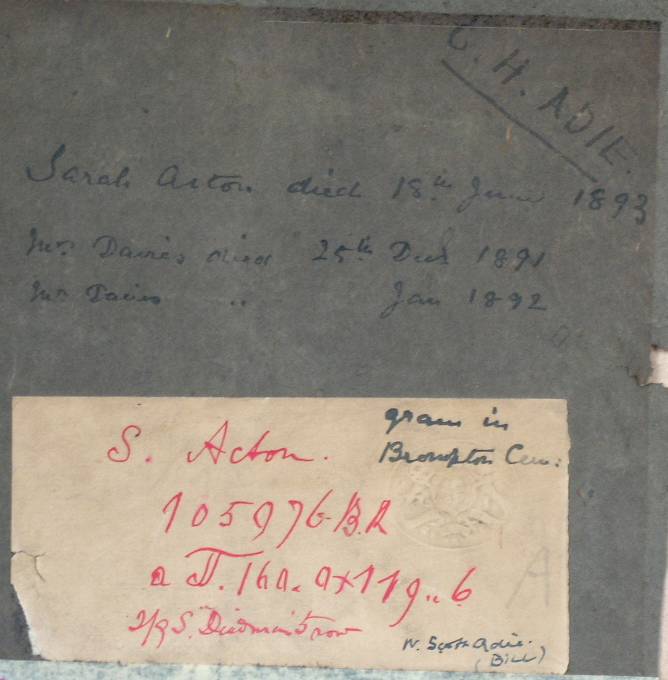 C. H. ADIE.
Sarah Acton died 18th June 1893
Mrs Davies died 25th Dec 1891
Mr Davies " Jan 1892
grave in
Brompton Cem:
S. Acton.
105976 B.R
6
A
W. Scott Adie.
(Bill)